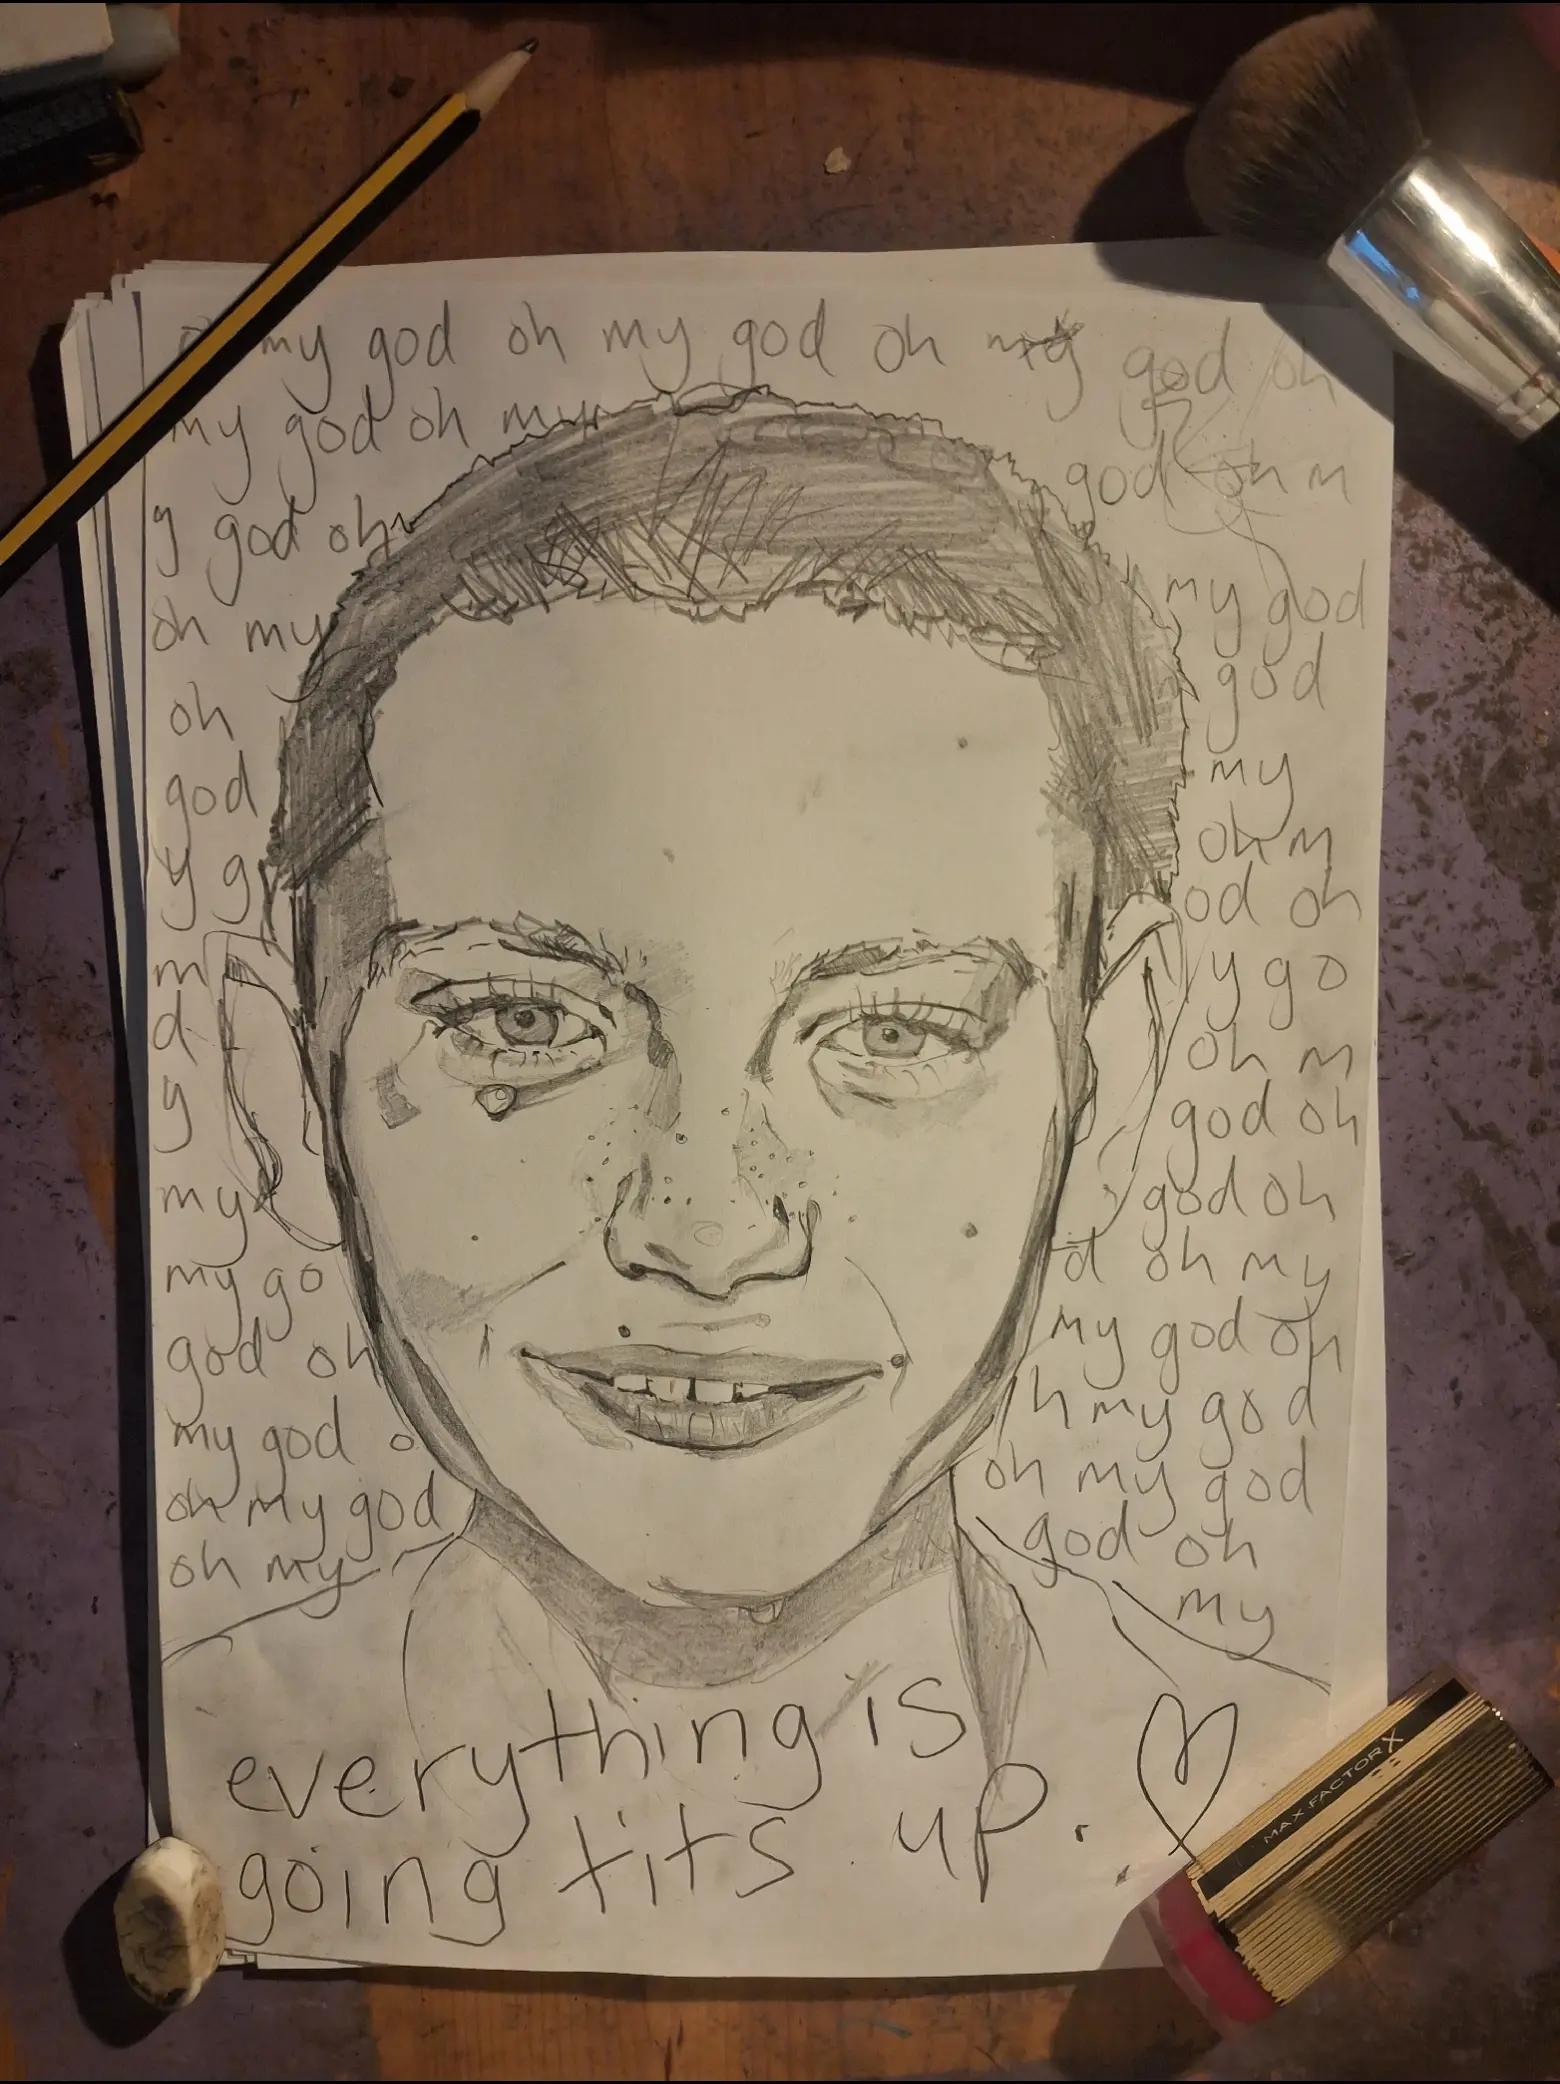 my god oh my god oh my god oh
my god oh my
god oh m
y god oh
oh my
my god
oh
god
god
my
y g
oh m
od oh
m
y go
d
oh m
y
god oh
my
god oh
my go
d oh my
god oh
my god oh
my god o
h my god
oh my god
oh my god
oh my
god oh
my
everything is
going tits up.
MAX FACTOR X